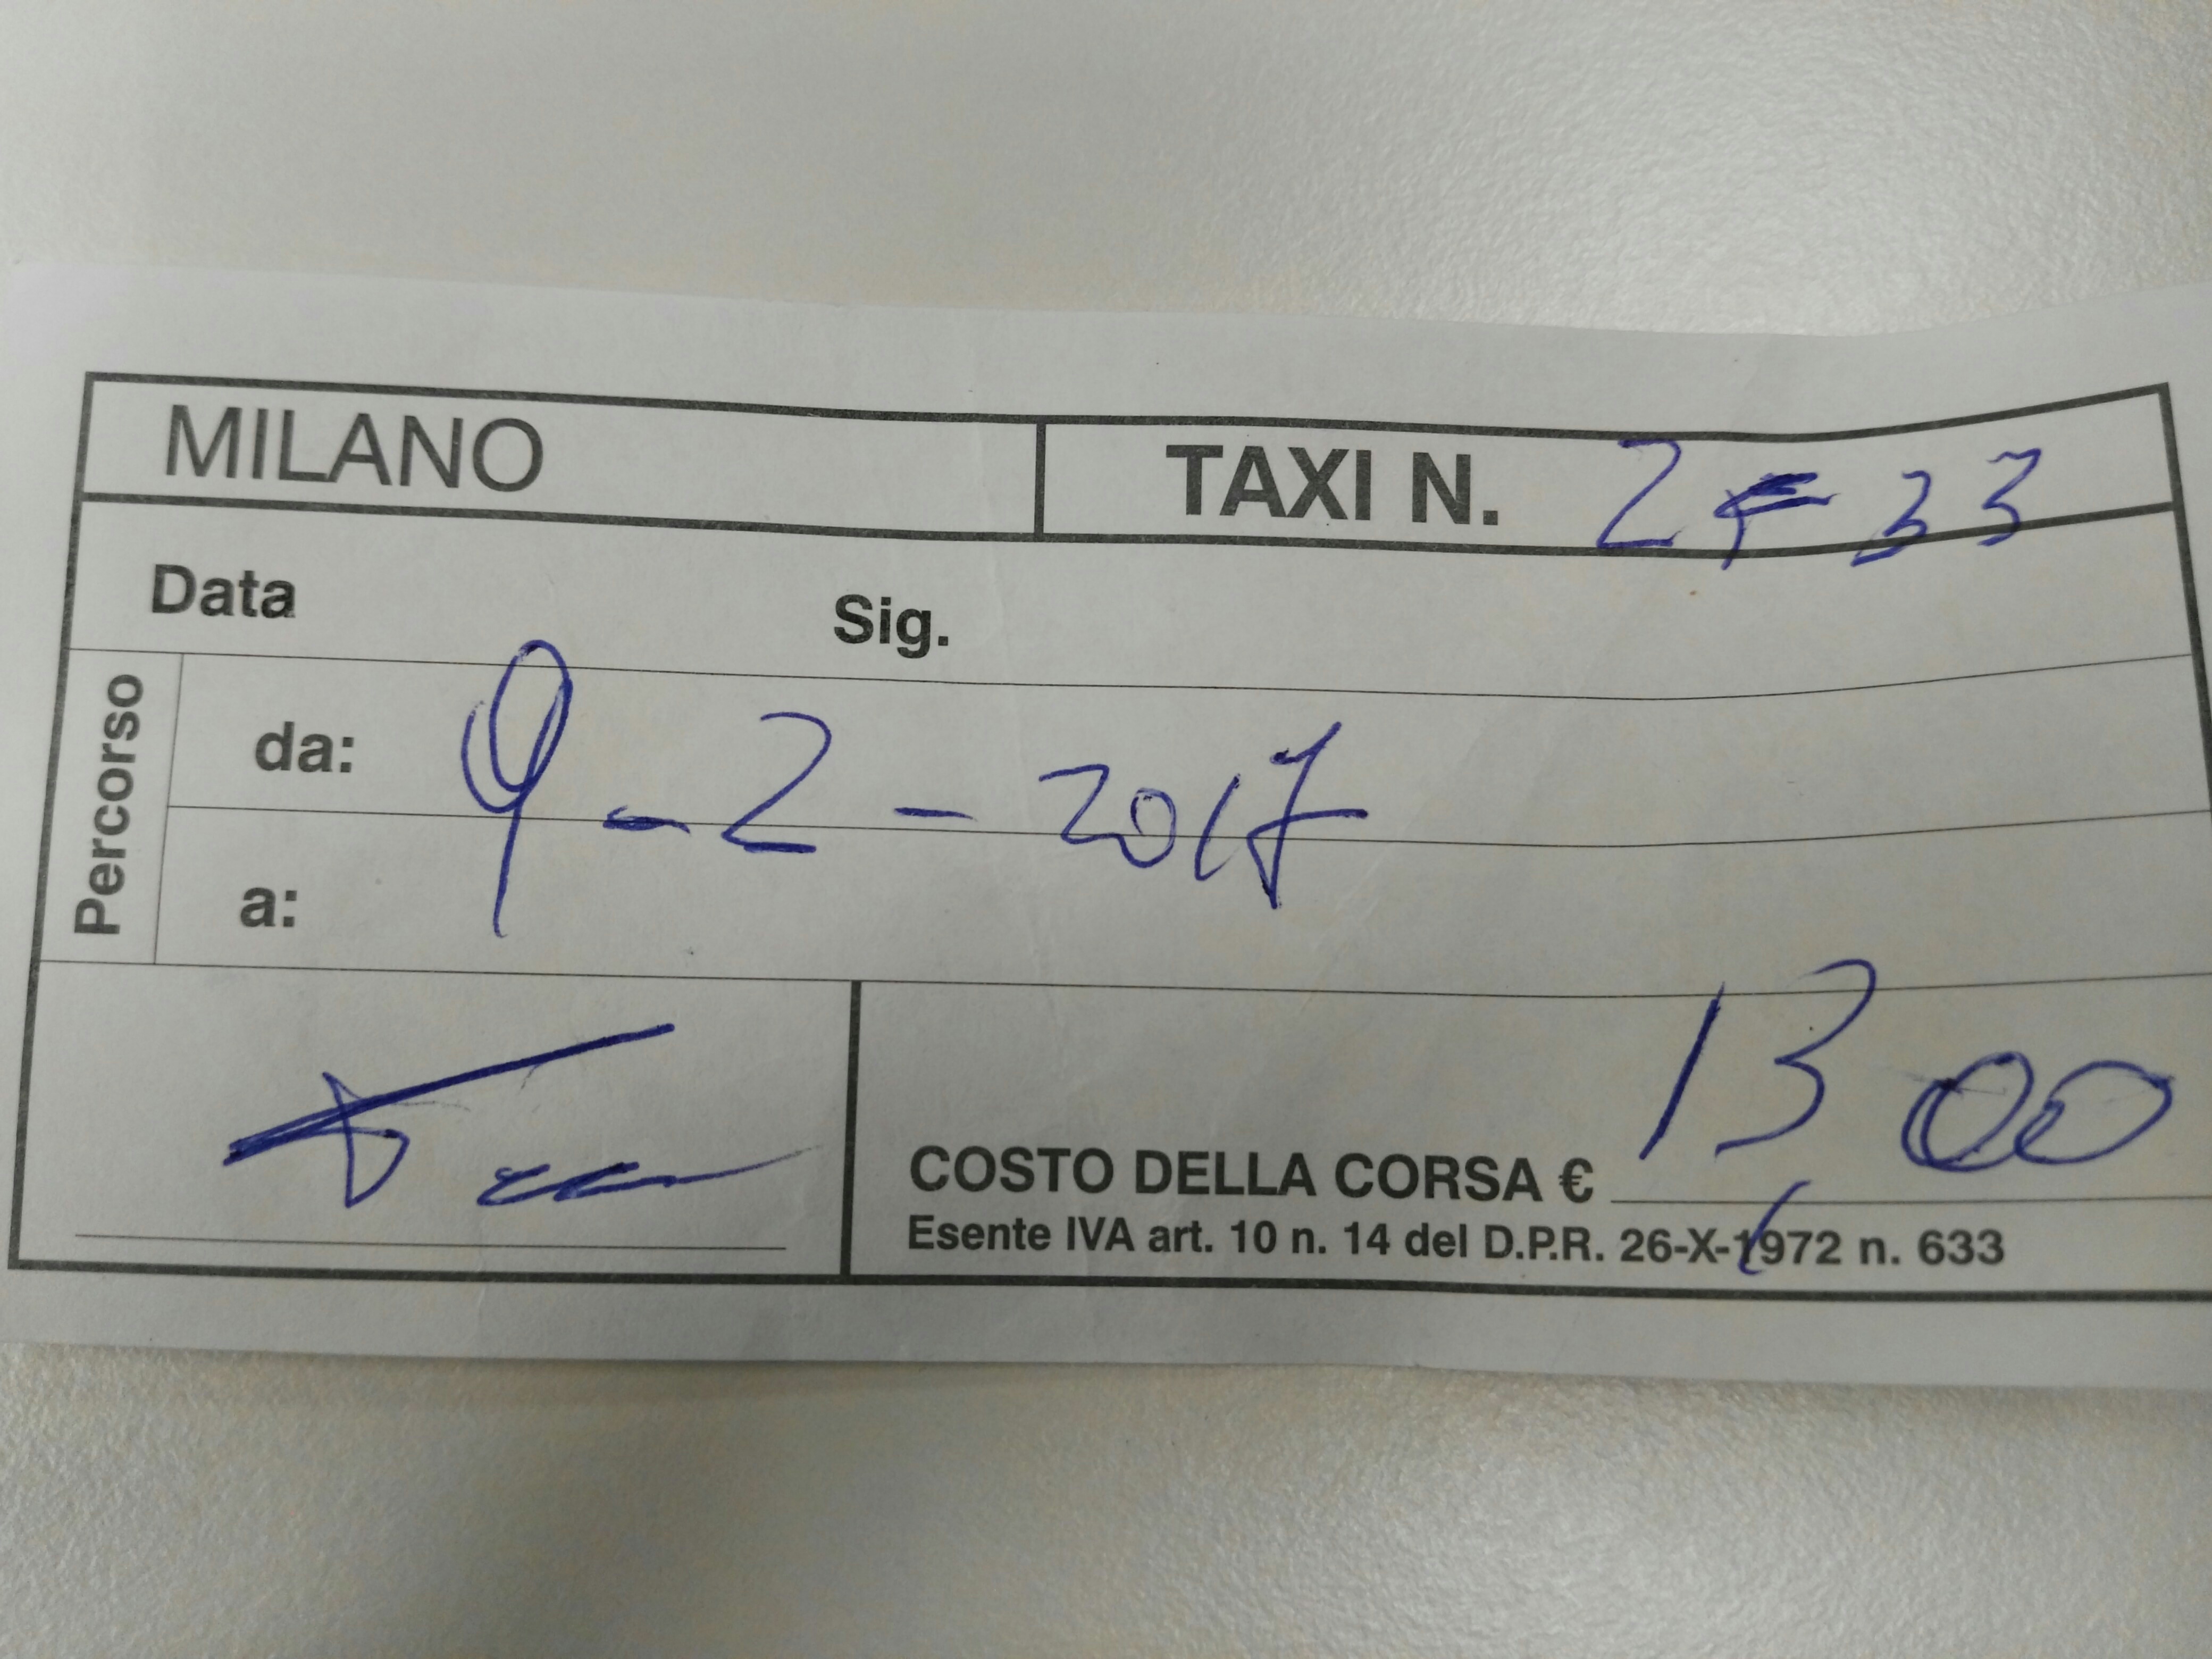 MILANO TAXI N. 2733
Data Sig.
Percorso
da: 9-2-2017
a:
13,00
COSTO DELLA CORSA €
Esente IVA art. 10 n. 14 del D.P.R. 26-X-1972 n. 633